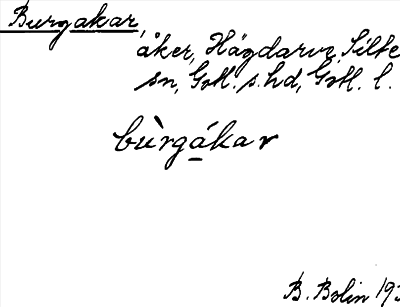 Burgakar,
åker, Hägdarve, Silte
sn, Gotl. s. hd, Gotl. l.
bùrgákar
B. Bolin 192